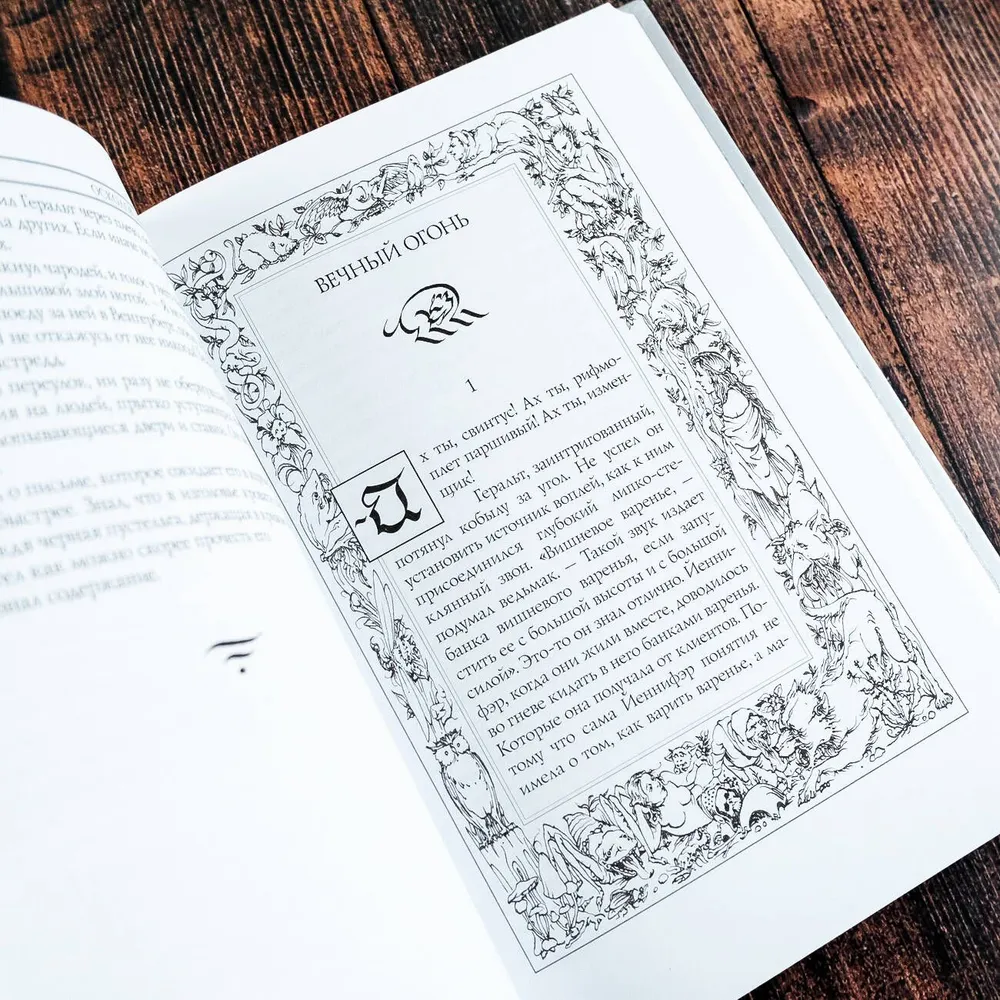 ил Геральт через плечо
на других. Если иначе не
кнул чародей, и гомон
лышивой злой нотой
поеду за ней в Венгерберг
И не откажусь от нее
астредд.
переулок, ни разу не
ия на людей, прытко
двери и ставни
о письме, которое ожидает его в
Знал, что в изголовье
черная пустельга, держащая в
как можно скорее прочесть его
знал содержание.
ВЕЧНЫЙ ОГОНЬ
1
А
х ты, свинтус! Ах ты, рифмо-
плет паршивый! Ах ты, измен-
щик!
Геральт, заинтригованный,
потянул кобылу за угол. Не успел он
установить источник воплей, как к ним
присоединился глубокий липко-сте-
клянный звон. «Вишневое варенье, —
подумал ведьмак. — Такой звук издает
банка вишневого варенья, если запу-
стить ее с большой высоты и с большой
силой». Это-то он знал отлично. Йенни-
фэр, когда они жили вместе, доводилось
во гневе кидать в него банками варенья.
Которые она получала от клиентов. По-
тому что сама Йеннифэр понятия не
имела о том, как варить варенье, а ма